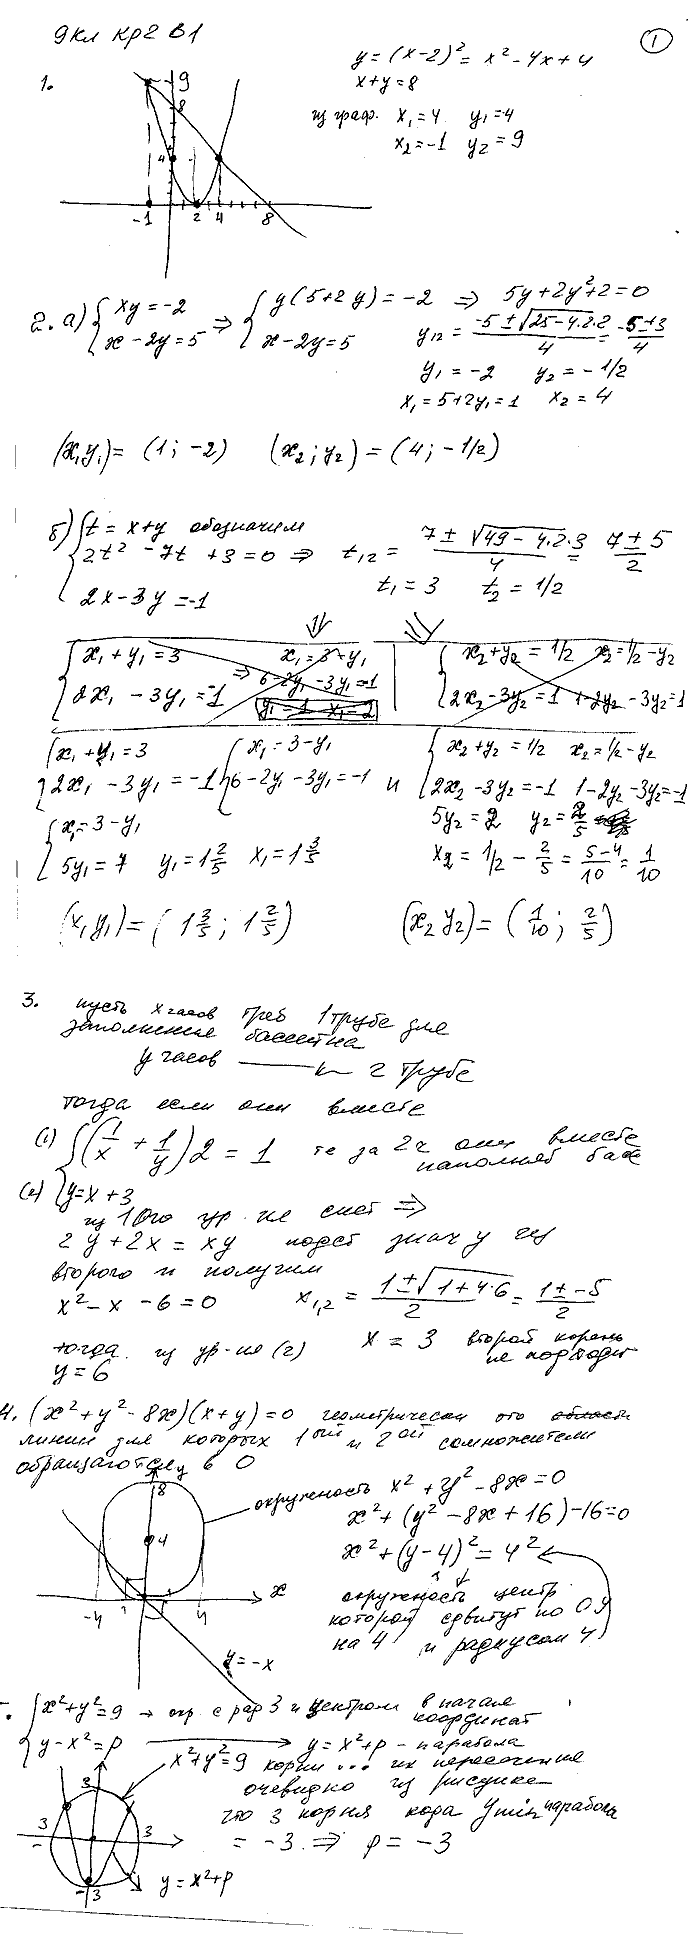 9кл кр2 В1
1
y=(x-2)² = x²-4x+4
x+y=8
1.
из граф. x₁=4 y₁=4
x₂=-1 y₂=9
9
8
4
-1 2 4 8
2. а) { xy=-2 ⇒ { y(5+2y)=-2 ⇒ 5y+2y²+2=0
x-2y=5 x-2y=5 y₁₂ = (-5±√(25-4·2·2))/4 = (-5±3)/4
y₁=-2 y₂=-1/2
x₁=5+2y₁=1 x₂=4
(x₁y₁)=(1;-2) (x₂;y₂)=(4;-1/2)
б) { t=x+y обозначим
2t²-7t+3=0 ⇒ t₁,₂ = (7±√(49-4·2·3))/4 = (7±5)/2
t₁=3 t₂=1/2
2x-3y=-1
{ x₁+y₁=3 x₁=3-y₁ { x₂+y₂=1/2 x₂=1/2-y₂
2x₁-3y₁=-1 ⇒ 6-2y₁-3y₁=1 2x₂-3y₂=1 1-2y₂-3y₂=1
y₁=1 x₁=2
{ x₁+y₁=3 { x₁=3-y₁ { x₂+y₂=1/2 x₂=1/2-y₂
2x₁-3y₁=-1 6-2y₁-3y₁=-1 и 2x₂-3y₂=-1 1-2y₂-3y₂=-1
{ x₁=3-y₁ 5y₂=2 y₂=2/5
5y₁=7 y₁=1 2/5 x₁=1 3/5 x₂=1/2-2/5=(5-4)/10=1/10
(x₁y₁)=(1 3/5; 1 2/5) (x₂y₂)=(1/10; 2/5)
3. пусть x часов треб 1 трубе для
заполнения бассейна
y часов —— „ — 2 трубе
тогда если они вместе
(1) { (1/x + 1/y)2=1 те за 2ч они вместе
наполнят басс
(2) y=x+3
из 1ого ур-ие смет ⇒
2y+2x=xy подст знач y из
второго и получим
x²-x-6=0 x₁,₂ = (1±√(1+4·6))/2 = (1±-5)/2
тогда из ур-ие (2) x=3 второй корень
не подходит
y=6
4. (x²+y²-8x)(x+y)=0 геометрически это области
линии для которых 1ой и 2ой сомножители
обращаются в 0
y
8
окружность x²+y²-8x=0
x²+(y²-8x+16)-16=0
4
x²+(y-4)²=4²
x
-4 4
окружность центр
которой сдвинут по Oy
на 4 и радиусом 4
y=-x
{ x²+y²=9 → окр. с рад 3 и центром в начале
координат
y-x²=p → y=x²+p - парабола
x²+y²=9 корни ... их пересечение
очевидно из рисунке
3
что 3 корня когда y min парабола
3 3
= -3. ⇒ p=-3
-3
y=x²+p